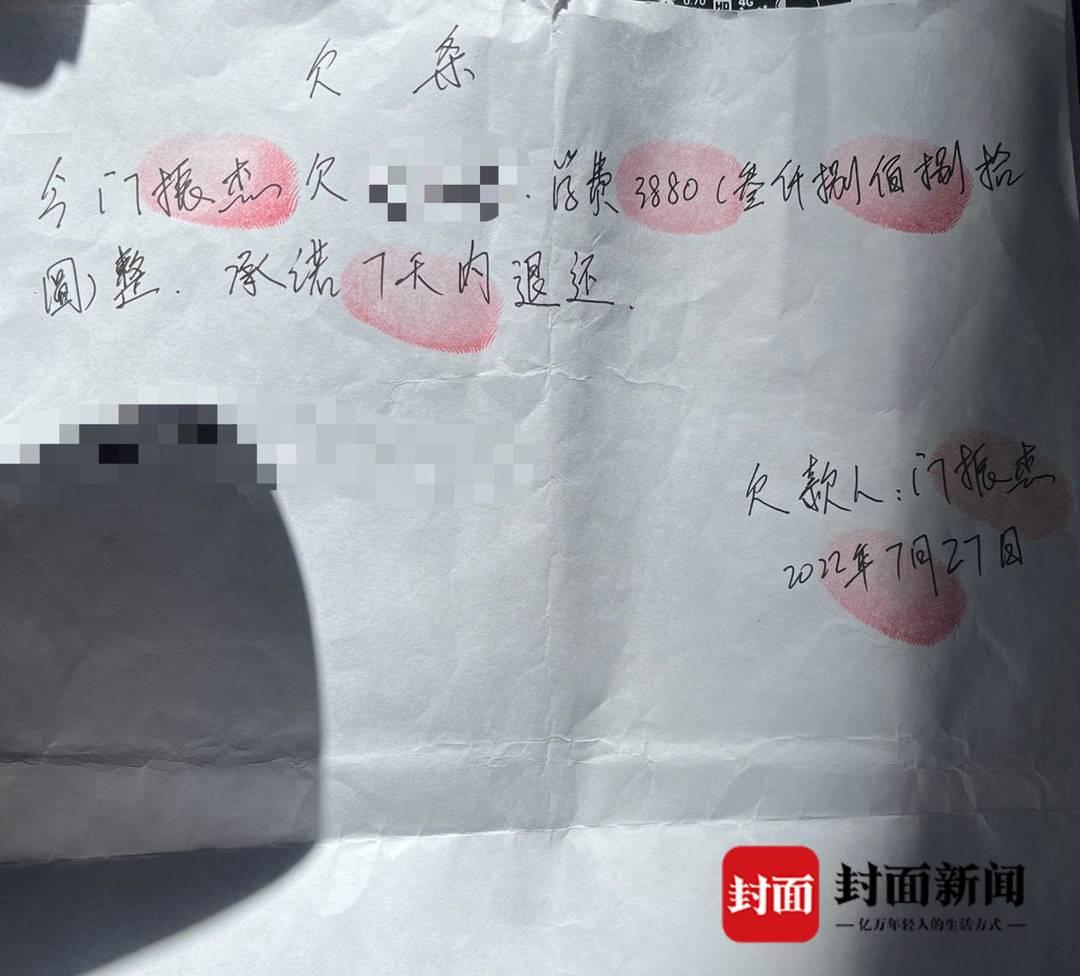 HD 4G
欠条
今门振杰欠 学费3880(叁仟捌佰捌拾
圆)整.承诺7天内退还.
欠款人:门振杰
2022年7月27日
封面 封面新闻
亿万年轻人的生活方式